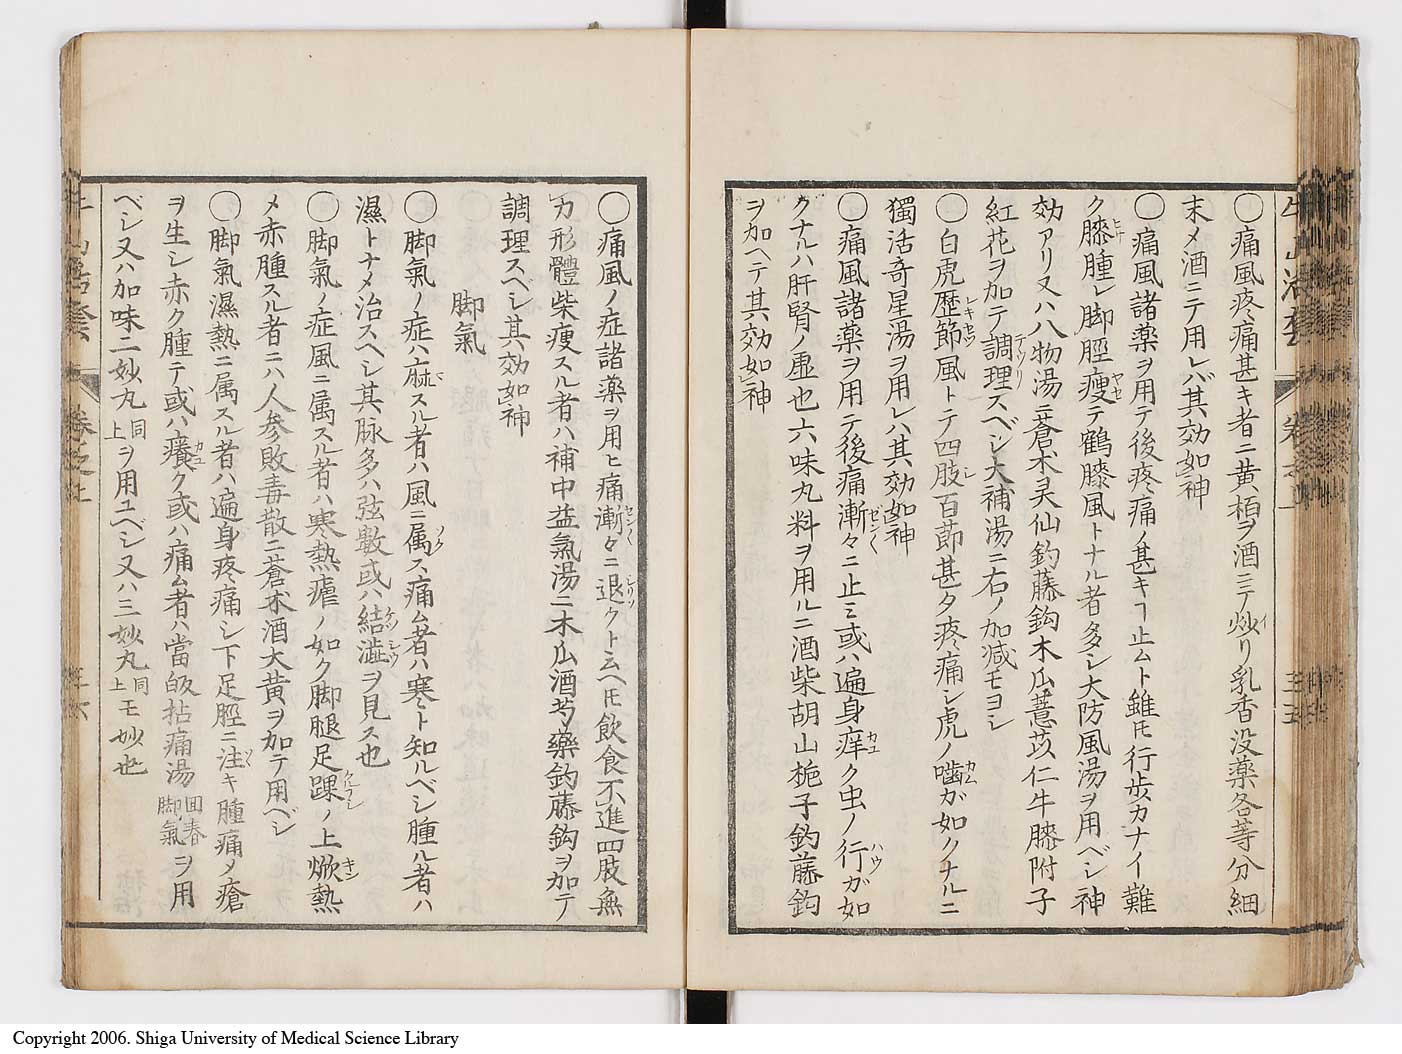 〇痛風疼痛甚キ者ニ黄栢ヲ酒ニテ炒リ乳香没薬各等分細
末メ酒ニテ用レバ其効如神
〇痛風諸薬ヲ用テ後疼痛ノ甚キヿ止ムト雖圧行歩カナイ難
ク膝腫レ脚脛瘦テ鶴膝風トナル者多シ大防風湯ヲ用ベシ神
効アリ又ハ八物湯ニ蒼朮灵仙釣藤鈎木瓜薏苡仁牛膝附子
紅花ヲ加テ調理スベシ大補湯ニ右ノ加減モヨシ
〇白虎歴節風トテ四肢百節甚タ疼痛シ虎ノ嚙ガ如クナルニ
獨活寄星湯ヲ用レハ其効如神
〇痛風諸薬ヲ用テ後痛漸々ニ止ミ或ハ遍身痒ク虫ノ行ガ如
クナルハ肝腎ノ虛也六味丸料ヲ用ルニ酒柴胡山梔子釣藤鈎
ヲ加ヘテ其効如神
〇痛風ノ症諸薬ヲ用ヒ痛漸々ニ退クト云ヘ圧飲食不進四肢無
力形體柴瘦スル者ハ補中益氣湯ニ木瓜酒芍藥釣藤鈎ヲ加テ
調理スヘシ其効如神
脚氣
〇脚氣ノ症ハ麻スル者ハ風ニ属ス痛ム者ハ寒ト知ルベシ腫ル者ハ
濕トナメ治スヘシ其脉多ハ弦數或ハ結澁ヲ見ス也
〇脚氣ノ症風ニ属スル者ハ寒熱瘧ノ如ク脚腿足踝ノ上焮熱
メ赤腫スル者ニハ人参敗毒散ニ蒼朮酒大黄ヲ加テ用ベシ
〇脚氣濕熱ニ属スル者ハ遍身疼痛シ下足脛ニ注キ腫痛メ瘡
ヲ生シ赤ク腫テ或ハ癢ク或ハ痛ム者ハ當皈拈痛湯回春脚氣ヲ用
ベシ又ハ加味二妙丸同上ヲ用ユベシ又ハ三妙丸同上モ妙也
Copyright 2006. Shiga University of Medical Science Library